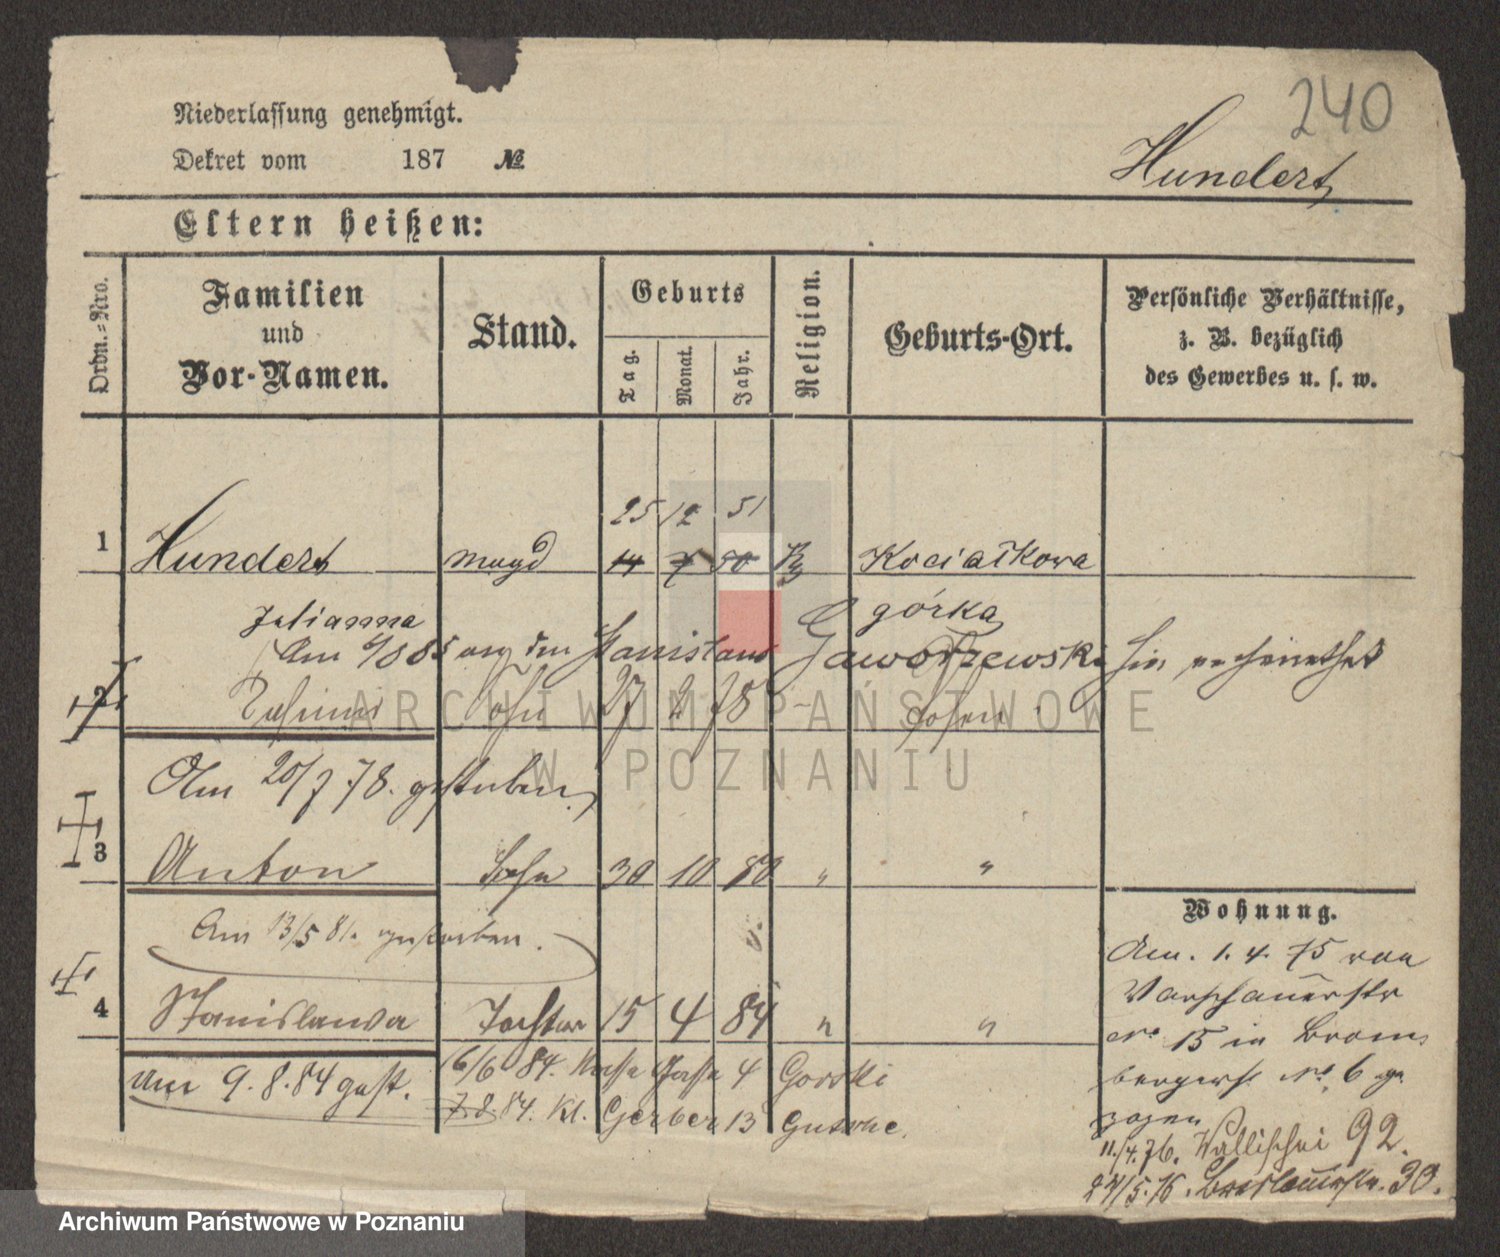 240
Niederlassung genehmigt.
Dekret vom 187 №
Hundert
Eltern heißen:
Ordn.-Nro.
Familien und Vor-Namen.
Stand.
Geburts
Tag. Monat. Jahr.
Religion.
Geburts-Ort.
Persönliche Verhältnisse, z. B. bezüglich des Gewerbes u. s. w.
25 12 51
1 Hundert Magd 14 7 50 Kociałkowa
Julianna górka
Am den Stanislaus Gaworzewski
2 Sohn 27 2 78 Posen
Am 20/7 78. gestorben
3 Anton Sohn 30 10 80 " "
Am 13/5 81. gestorben.
4 Stanislawa Tochter 15 4 84 " "
Am 9.8.84 gest.
16/6 84. 4 Gorski
7.8.84. Kl. Gerber 13 Gutsche.
Wohnung.
Am. 1. 4. 75 von
Warschauerstr
No 15 in Brom
bergerst No 6 ge
zogen
11./4.76. Wallischei 92.
24/5.76. Breslauerstr. 30.
ARCHIWUM PAŃSTWOWE
W POZNANIU
Archiwum Państwowe w Poznaniu